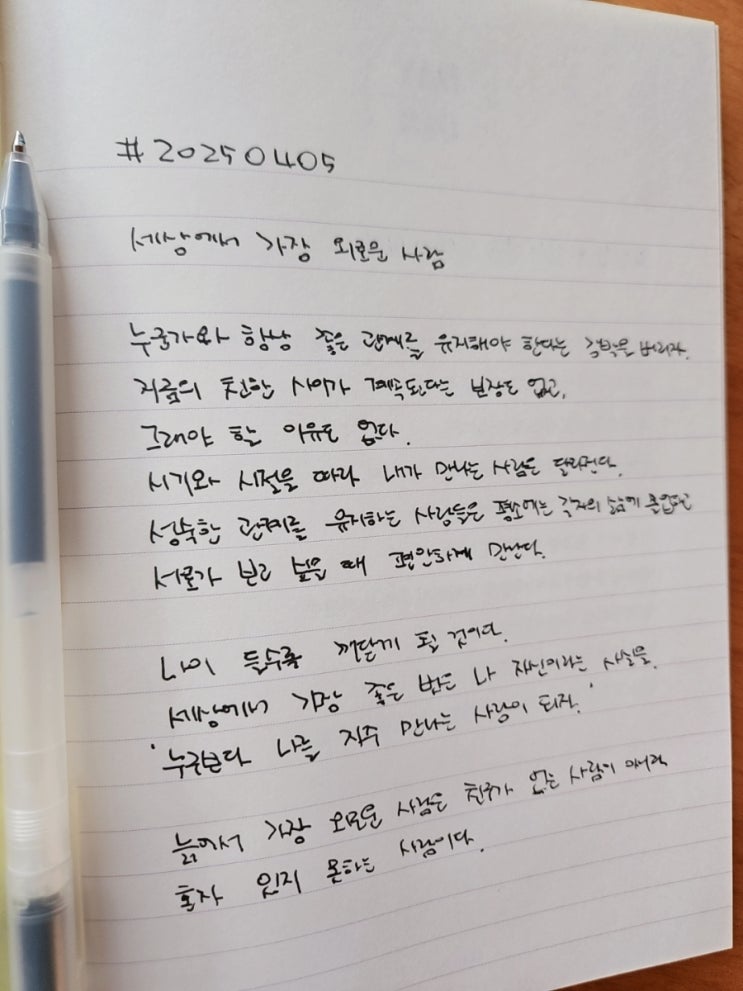 #20250405
세상에서 가장 외로운 사람
누군가와 항상 좋은 관계를 유지해야 한다는 강박을 버리자.
지금의 친한 사이가 계속된다는 보장도 없고,
그래야 할 이유도 없다.
시기와 시절을 따라 내가 만나는 사람은 달라진다.
성숙한 관계를 유지하는 사람들은 평소에는 각자의 삶에 몰입하고
서로가 보고 싶을 때 편안하게 만난다.
나이 들수록 깨닫게 될 것이다.
세상에서 가장 좋은 벗은 나 자신이라는 사실을.
'누구보다 나를 자주 만나는 사람이 되자.'
늙어서 가장 외로운 사람은 친구가 없는 사람이 아니라
혼자 있지 못하는 사람이다.